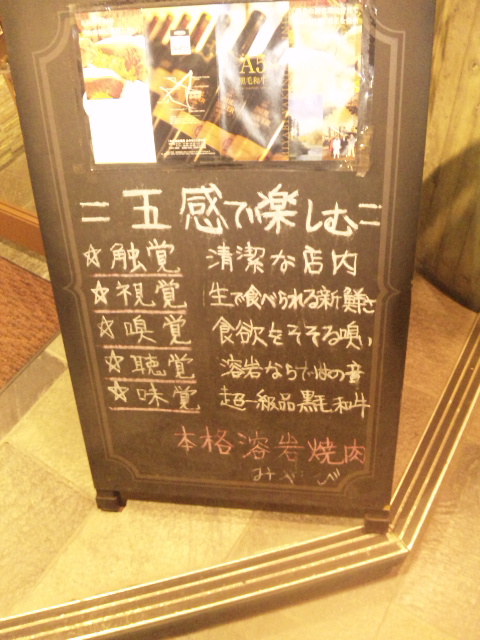 A5
黒毛和牛
＝五感で楽しむ＝
☆触覚 清潔な店内
☆視覚 生で食べられる新鮮さ
☆嗅覚 食欲をそそる嗅い
☆聴覚 溶岩ならではの音
☆味覚 超一級品黒毛和牛
本格溶岩焼肉
みやび